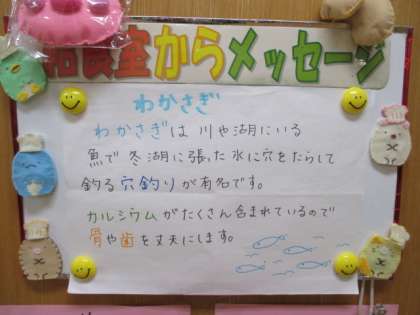 給食室からメッセージ
わかさぎ
わかさぎは川や湖にいる
魚で冬湖に張った氷に穴をたらして
釣る穴釣りが有名です。
カルシウムがたくさん含まれているので
骨や歯を丈夫にします。